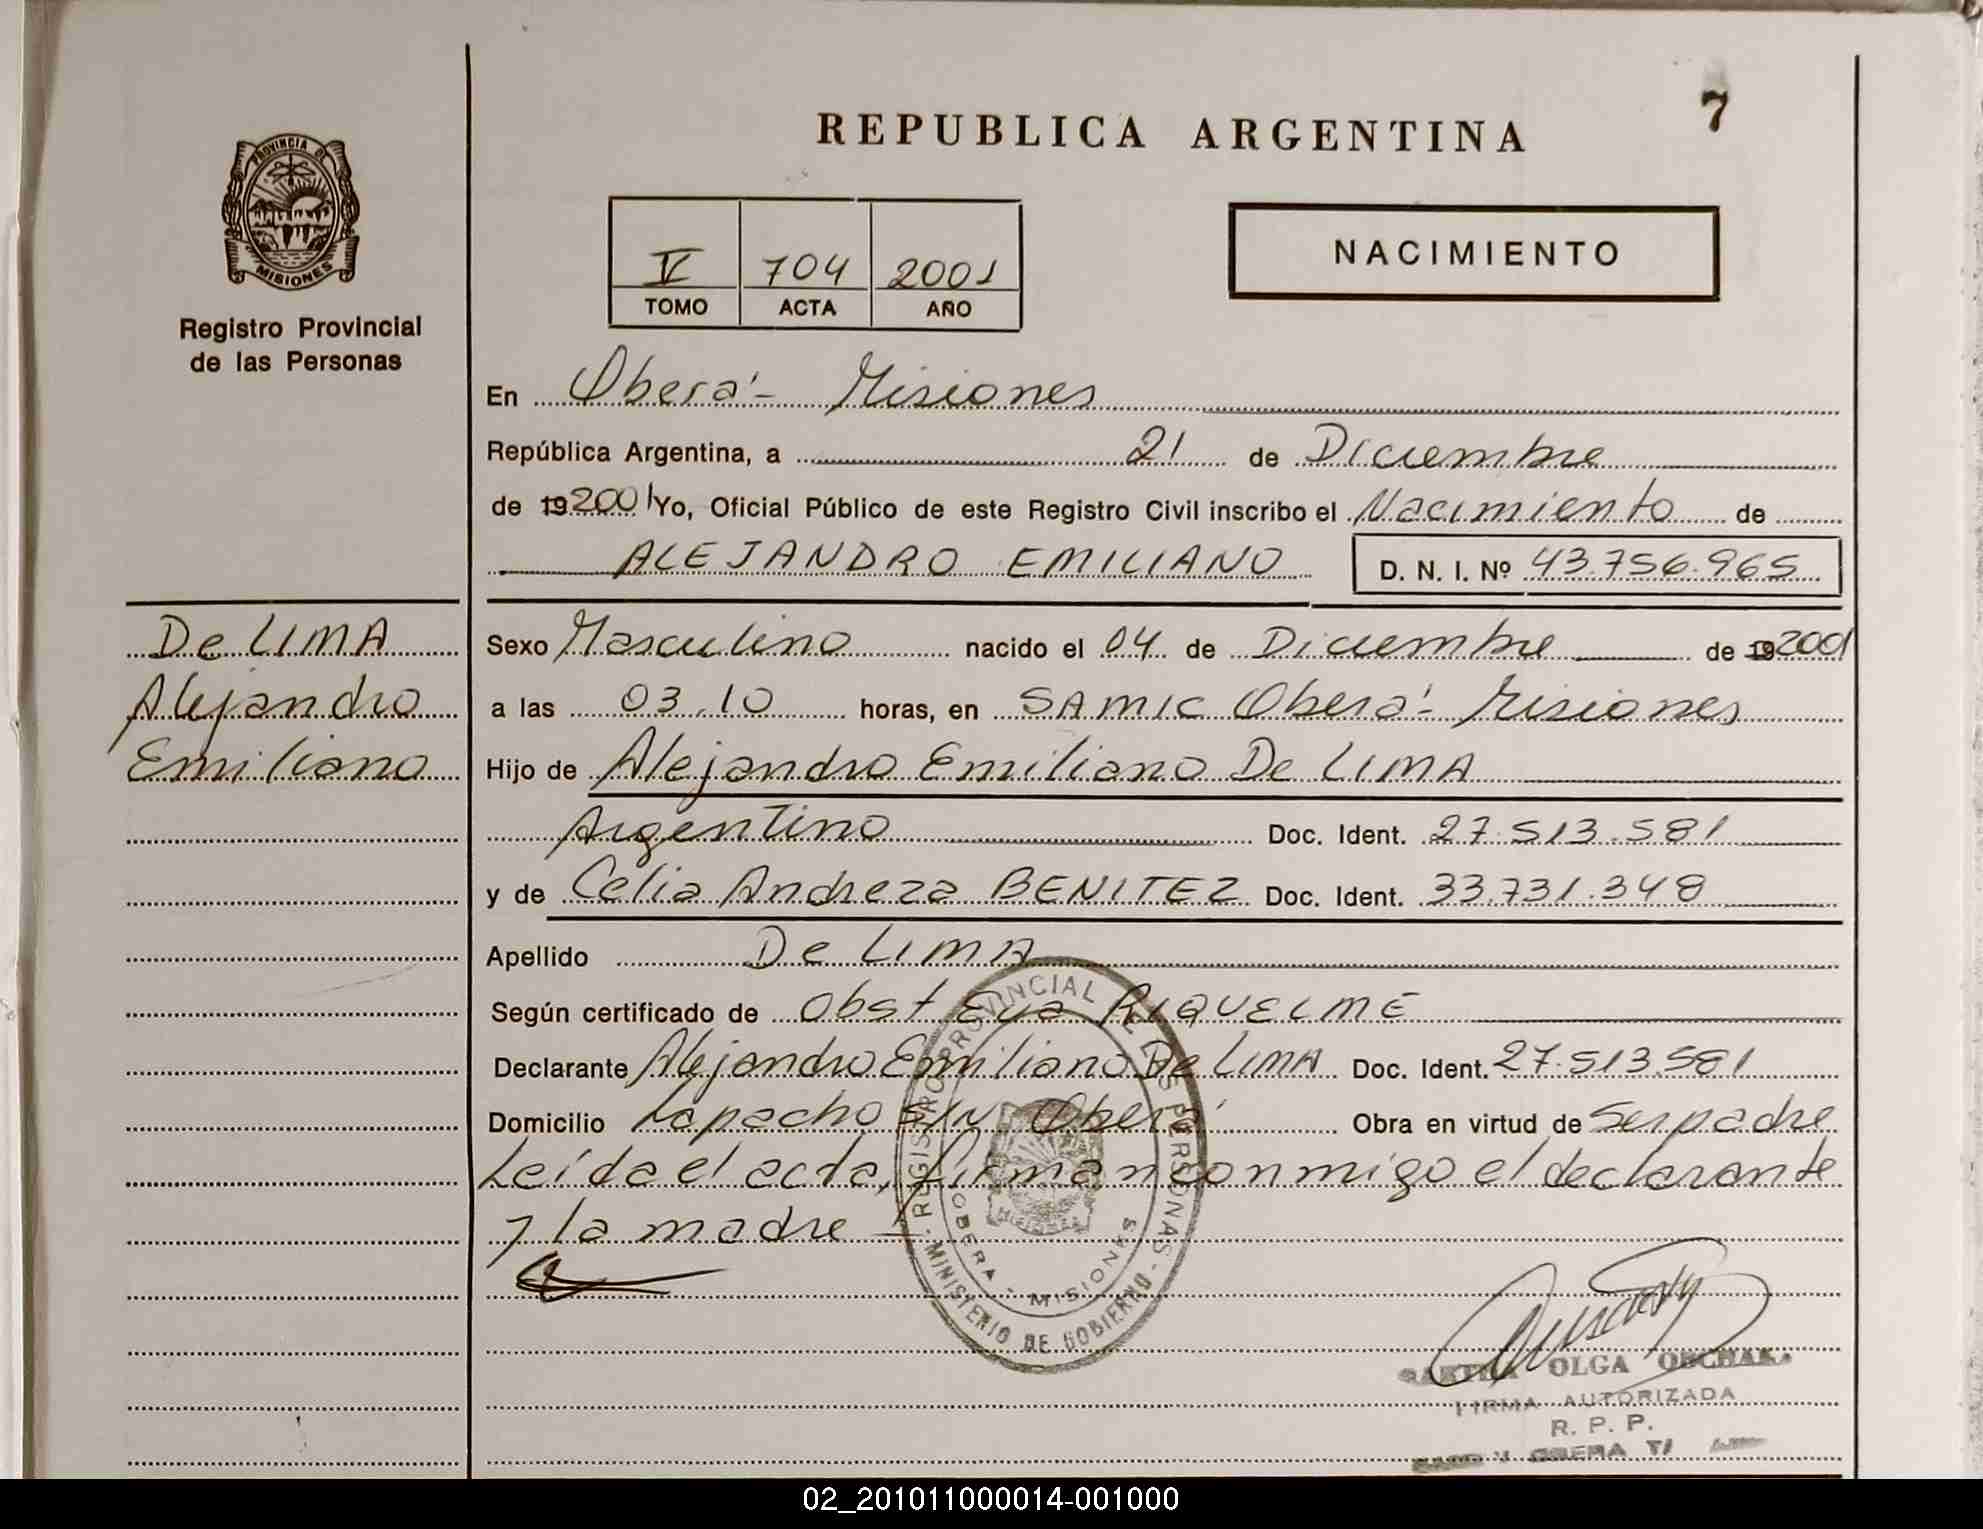 7
REPUBLICA ARGENTINA
PROVINCIA DE
MISIONES
Registro Provincial
de las Personas
V 704 2001
TOMO ACTA AÑO
NACIMIENTO
En Oberá - Misiones
República Argentina, a 21 de Diciembre
de 19 2001 Yo, Oficial Público de este Registro Civil inscribo el Nacimiento de
ALEJANDRO EMILIANO D. N. I. Nº 43.756.965
De LIMA
Alejandro
Emiliano
Sexo Masculino nacido el 04 de Diciembre de 19 2001
a las 03.10 horas, en SAMIC Oberá - Misiones
Hijo de Alejandro Emiliano De LIMA
Argentino Doc. Ident. 27.513.581
y de Celia Andreza BENITEZ Doc. Ident. 33.731.348
Apellido De LIMA
Según certificado de Obst Eva RIQUELME
Declarante Alejandro Emiliano De LIMA Doc. Ident. 27.513.581
Domicilio Lapacho S/N Oberá Obra en virtud de Ser padre
Leída el acta, firman conmigo el declarante
y la madre
REGISTRO PROVINCIAL DE LAS PERSONAS
MINISTERIO DE GOBIERNO
OBERA - MISIONES
MISIONES
OLGA
FIRMA AUTORIZADA
R. P. P.
OBERA
02_201011000014-001000